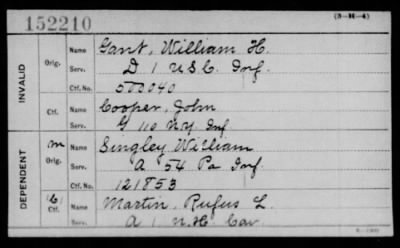 152210
(3-H-4)
INVALID
Orig.
Name Gant, William H.
Serv. D 1 U S C. Inf.
Ctf. No. 500040
Ctf.
Name Cooper, John
Serv. G 110 N.Y. Inf
DEPENDENT
m
Orig.
Name Singley William
Serv. A 54 Pa Inf.
Ctf. No. 121853
Ctf.
Name Martin, Rufus L.
Serv. A 1 N.H. Cav